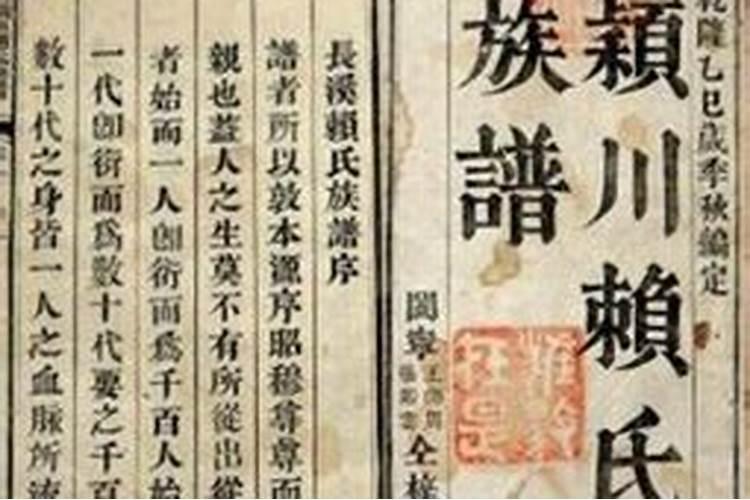 乾隆乙巳歲季秋編定
潁川賴氏
族譜
閩寧
仝梓
長溪賴氏族譜序
譜者所以敦本源序昭穆尊尊而
親也蓋人之生莫不有所從出從
者始而一人卽衍而爲千百人始
一代卽衍而爲數十代要之千百
數十代之身皆一人之血脈所流